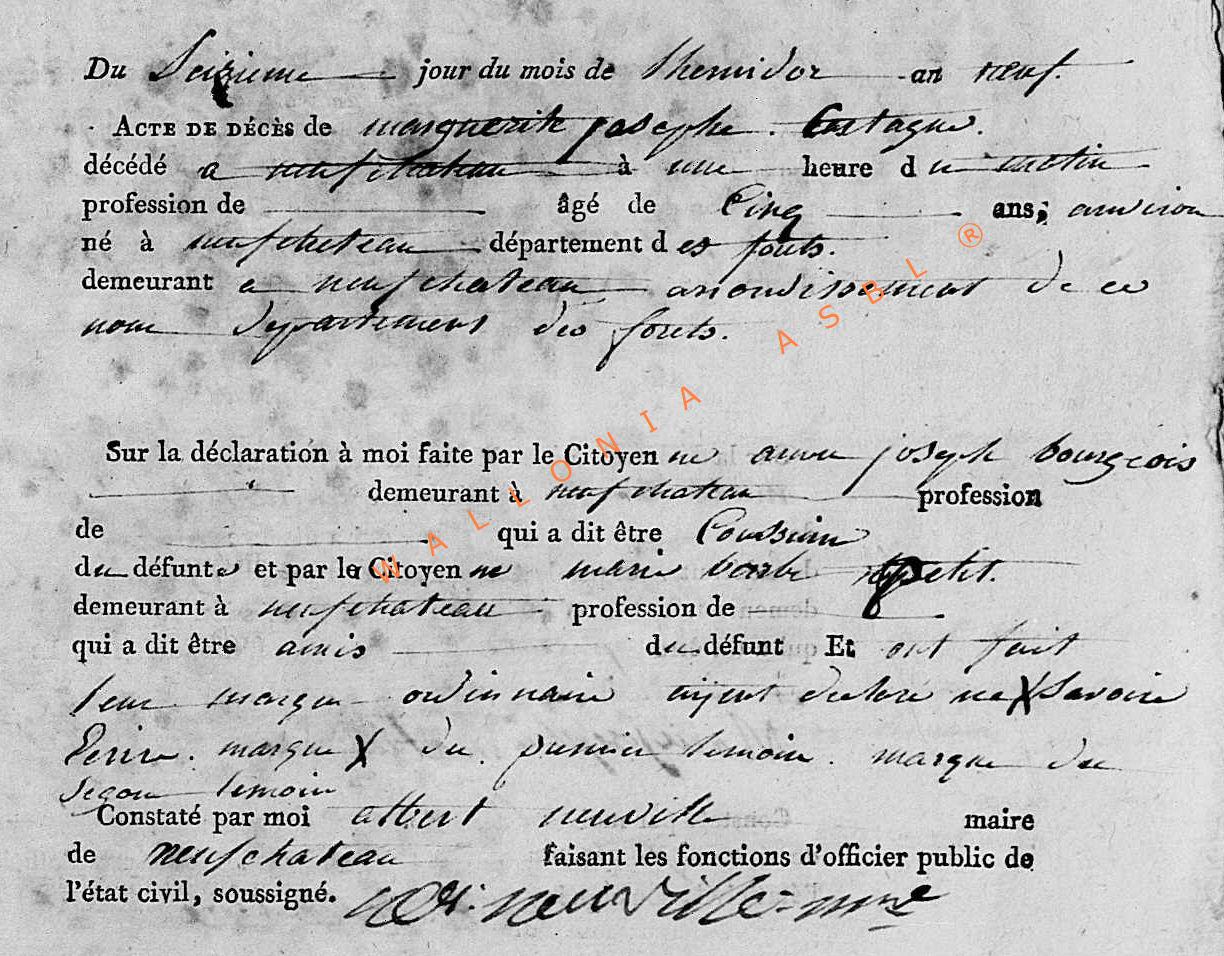 Du Seizieme jour du mois de thermidor an neuf.
ACTE DE DÉCÈS de marguerite josephe. Castagne.
décédé a neufchateau à une heure du matin
profession de âgé de Cinq ans, anviron
né à neufchateau département des forets.
demeurant a neufchateau arrondissement de ce
nom departement des forets.
Sur la déclaration à moi faite par le Citoyenne anne joseph bourgeois
demeurant à neufchateau profession
de qui a dit être Coussinne
du défunte et par le Citoyenne marie barbe petit.
demeurant à neufchateau profession de
qui a dit être amis du défunt Et ont fait
leur marque ordinnaire ayent declare ne X Savoire
Ecrire. marque X du premier temoin. marque du
segon temoin
Constaté par moi albert neuville maire
de neufchateau faisant les fonctions d'officier public de
l'état civil, soussigné. neuville
WALLONIA ASBL ®